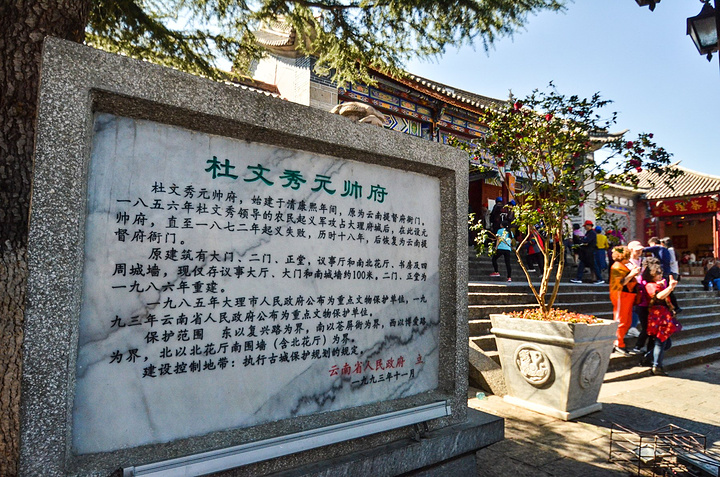 杜文秀元帅府
杜文秀元帅府，始建于清康熙年间，原为云南提督府衙门。
一八五六年杜文秀领导的农民起义军攻占大理府城后，在此设元
帅府，直至一八七二年起义失败，历时十八年，后恢复为云南提
督府衙门。
原建筑有大门、二门、正堂，议事厅和南北花厅、书房及四
周城墙，现仅存议事大厅、大门和南城墙约100米。二门、正堂为
一九八六年重建。
一九八五年大理市人民政府公布为重点文物保护单位，一九
九三年云南省人民政府公布为重点文物保护单位。
保护范围　东以复兴路为界，南以苍屏街为界，西以博爱路
为界，北以北花厅南围墙（含北花厅）为界。
建设控制地带：执行古城保护规划的规定。
云南省人民政府 立
一九九三年十一月